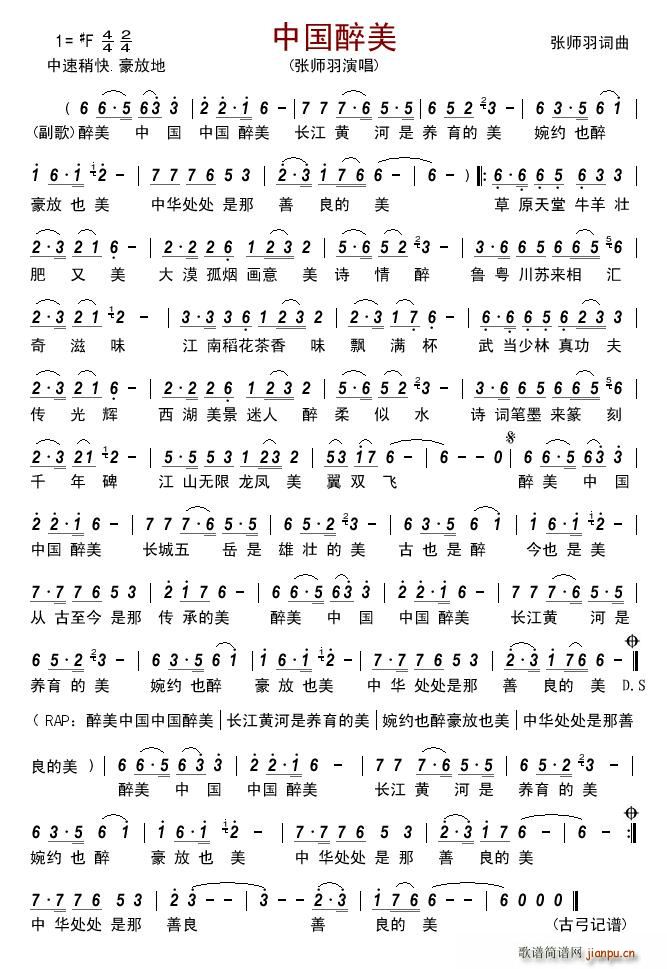 中国醉美
1=♯F 4/4 2/4
张师羽词曲
中速稍快.豪放地
(张师羽演唱)
( 6 6·5 63 3 | 2 2·1 6 - | 7 7 7·6 5·5 | 6 52 23 - | 6 3·5 6 1 |
(副歌)醉美 中 国 中国 醉美 长江 黄 河 是 养 育的 美 婉约 也醉
1 6·1 12 - | 7 7 7 6 5 3 | 2·3 1 76 6 - | 6 - ) ‖: 6·6 6 5 6 3 3 |
豪放 也 美 中华处处 是那 善 良的 美 草 原天堂 牛羊 壮
2·3 21 6 - | 2·2 2 6 1 2 3 2 | 5·6 52 23 - | 6·6 5 3 6 6 5 56 |
肥 又 美 大 漠 孤烟 画意 美 诗 情 醉 鲁 粤 川苏来相 汇
3·3 21 12 - | 3·3 3 6 1 2 3 2 | 2·3 17 6 - | 6·6 6 5 6 2 3 3 |
奇 滋 味 江 南稻花茶香 味 飘 满 杯 武 当少林 真功 夫
2·3 21 6 - | 2·2 2 6 1 2 3 2 | 5·6 52 23 - | 6·6 5 3 6 6 5 56 |
传 光 辉 西 湖 美景 迷人 醉 柔 似 水 诗 词笔墨 来篆 刻
2·3 21 12 - | 5·5 5 3 1 2 3 2 | 53 17 6 - | 6 - - 0 | 6 6·5 63 3 |
千 年 碑 江 山无限 龙凤 美 翼 双 飞 醉 美 中国
2 2·1 6 - | 7 7 7·6 5·5 | 6 5·2 23 - | 6 3·5 6 1 | 1 6·1 12 - |
中国 醉美 长城五 岳 是 雄 壮的 美 古 也是 醉 今也 是 美
7·7 7 6 5 3 | 2 1 7 6 - | 6 6·5 6 3 3 | 2 2·1 6 - | 7 7 7·6 5·5 |
从 古至今 是那 传 承的美 醉美 中 国 中国 醉美 长江黄 河 是
6 5·2 23 - | 6 3·5 6 1 | 1 6·1 12 - | 7·7 7 6 5 3 | 2·3 1 76 6 - |
养育 的 美 婉约 也醉 豪 放 也美 中 华 处处是那 善 良的 美 D.S
( RAP: 醉美中国中国醉美 | 长江黄河是养育的美 | 婉约也醉豪放也美 | 中华处处是那善
良的美 ) | 6 6·5 63 3 | 2 2·1 6 - | 7 7 7·6 6·3 | 6 5·2 23 - |
醉美 中 国 中国 醉美 长江 黄 河 是 养育 的 美
6 3·5 6 1 | 1 6·1 12 - | 7·7 7 6 5 3 | 2·3 1 76 | 6 - :‖
婉约 也 醉 豪 放 也 美 中 华处处 是 那 善 良的 美
7·7 7 6 5 3 | 2 3 - | 3 - | 2·3 1 76 | 6 - - - | 6 0 0 0 ‖
中 华 处处 是 那 善良 善 良的 美 (古弓记谱)
歌谱简谱网
jianpu.cn